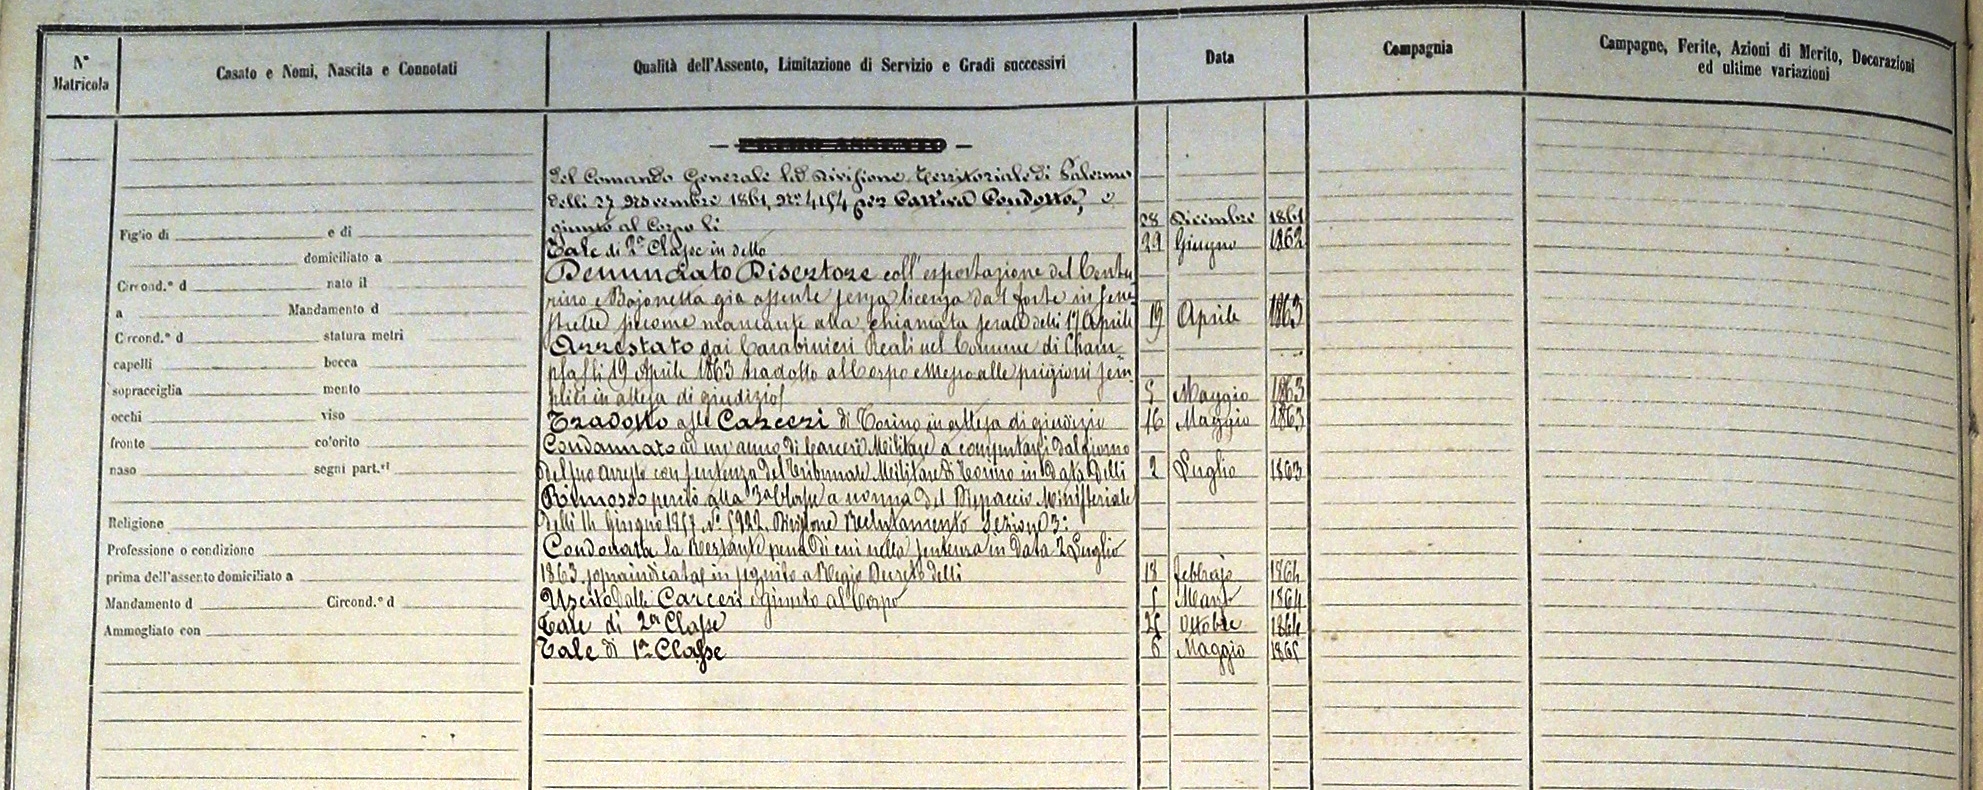 N° Matricola
Casato e Nomi, Nascita e Connotati
Qualità dell'Assento, Limitazione di Servizio e Gradi successivi
Data
Compagnia
Campagne, Ferite, Azioni di Merito, Decorazioni
ed ultime variazioni
del Comando Generale Divisione Territoriale di Palermo
delli 27 Novembre 1861, N° 4154 per Cattiva Condotta, e
giunto al Corpo li 28 Dicembre 1861
Tale di 2ª Classe in detto 29 Giugno 1862
Denunciato Disertore coll'esportazione del Centu
rino e Bajonetta già assente senza licenza dal forte in Fene
strelle siccome mancante alla chiamata serale delli 17 Aprile 19 Aprile 1863
Arrestato dai Carabinieri Reali nel Comune di Cham
plas li 19 Aprile 1863 tradotto al Corpo e Messo alle prigioni sem
plici in attesa di giudizio 5 Maggio 1863
Tradotto alle Carceri di Torino in attesa di giudizio 16 Maggio 1863
Condannato ad un anno di Carcere Militare a computarsi dal giorno
del suo arresto con sentenza del Tribunale Militare di Torino in data delli 2 Luglio 1863
Rimosso perciò alla 3ª Classe a norma del Dispaccio Ministeriale
delli Giugno 1857 N° 5922 Divisione Reclutamento Sezione 3ª
Condonata la Restante pena di cui nella sentenza in data 2 Luglio
1863 sopraindicata in seguito a Regio Decreto delli 18 febbrajo 1864
Uscito dalle Carceri e giunto al Corpo Marzo 1864
Tale di 2ª Classe 25 Ottobre 1864
Tale di 1ª Classe 6 Maggio 1865
Figlio di e di
domiciliato a
Circond.° d nato il
a Mandamento d
Circond.° d statura metri
capelli bocca
sopracciglia mento
occhi viso
fronte colorito
naso segni part.ri
Religione
Professione o condizione
prima dell'assento domiciliato a
Mandamento d Circond.° d
Ammogliato con